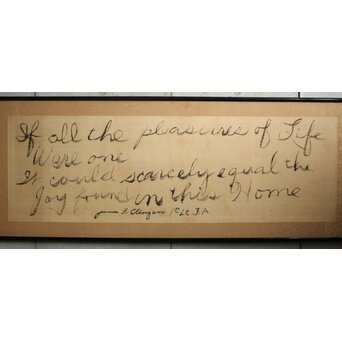 If all the pleasures of Life
Were one
It could scarcely equal the
Joy found in this Home
1st Lt. F.A.